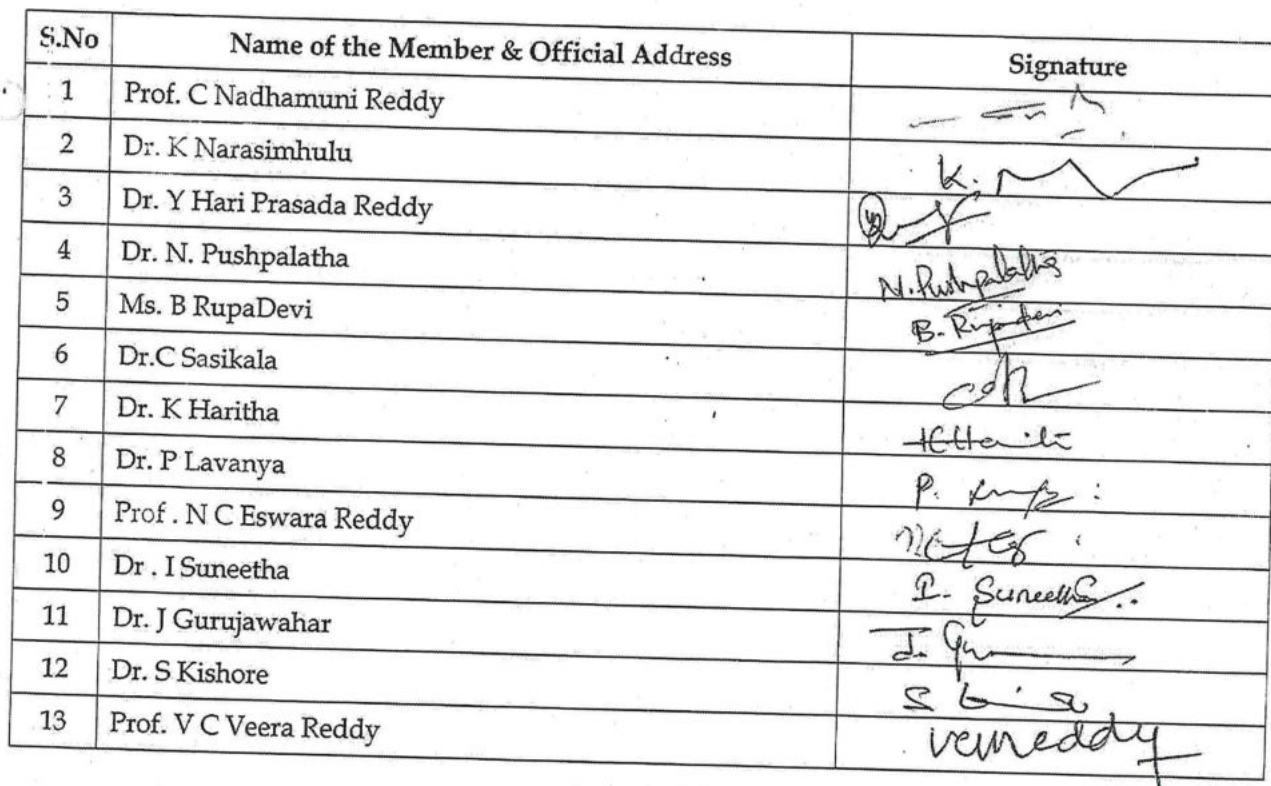 S.No Name of the Member & Official Address Signature
1 Prof. C Nadhamuni Reddy
2 Dr. K Narasimhulu K.
3 Dr. Y Hari Prasada Reddy
4 Dr. N. Pushpalatha N. Pushpalatha
5 Ms. B RupaDevi B. Rupadevi
6 Dr.C Sasikala
7 Dr. K Haritha
8 Dr. P Lavanya P.
9 Prof . N C Eswara Reddy
10 Dr . I Suneetha I. Suneetha
11 Dr. J Gurujawahar J.
12 Dr. S Kishore S
13 Prof. V C Veera Reddy